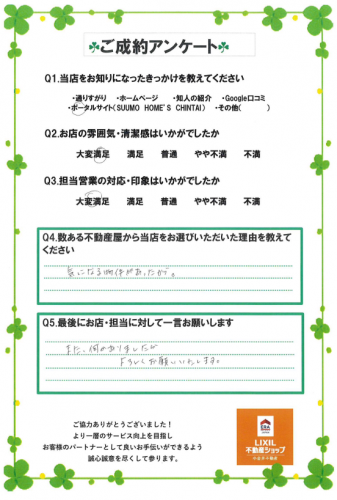 ご成約アンケート
Q1.当店をお知りになったきっかけを教えてください
・通りすがり ・ホームページ ・知人の紹介 ・Google口コミ
・ポータルサイト(SUUMO HOME'S CHINTAI) ・その他( )
Q2.お店の雰囲気・清潔感はいかがでしたか
大変満足 満足 普通 やや不満 不満
Q3.担当営業の対応・印象はいかがでしたか
大変満足 満足 普通 やや不満 不満
Q4.数ある不動産屋から当店をお選びいただいた理由を教えて
ください
気になる物件があったので。
Q5.最後にお店・担当に対して一言お願いします
また、何かありましたら
よろしくお願いいたします。
ご協力ありがとうございました!
より一層のサービス向上を目指し
お客様のパートナーとして良いお手伝いができるよう
誠心誠意を尽くして参ります。
ERA
LIXIL
不動産ショップ